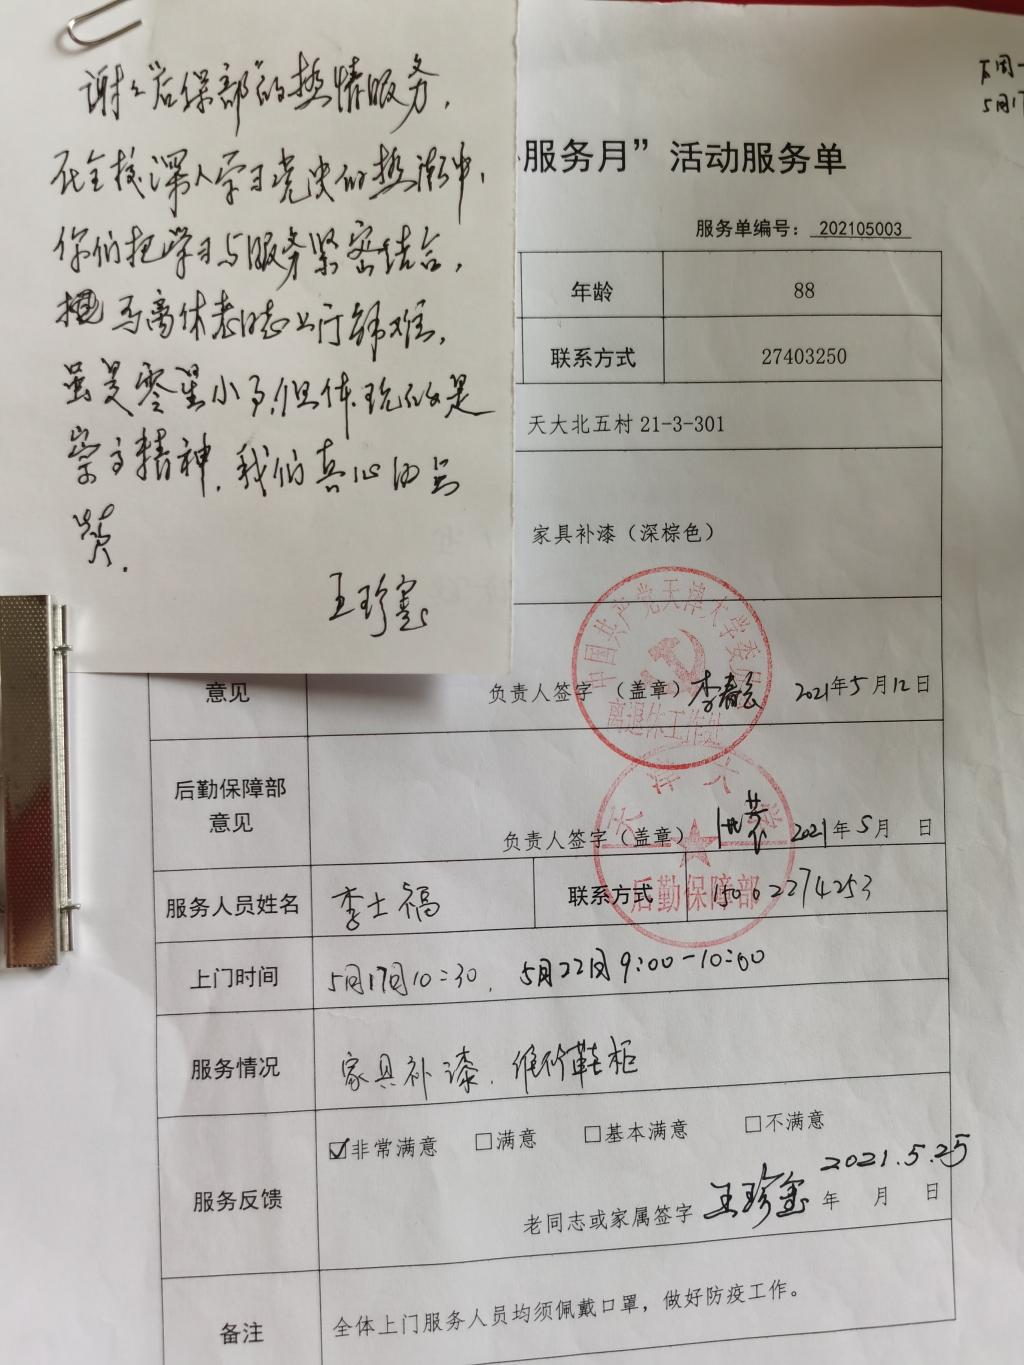 谢々“后保部”的热情服务，
在全校深入学习党史的热潮中，
你们把学习与服务紧密结合，
为离休老同志上门解难，
虽是零星小事，但体现的是
崇高精神，我们真心的点
赞。
王珍玺
5月17
服务月”活动服务单
服务单编号：202105003
年龄 88
联系方式 27403250
天大北五村 21-3-301
家具补漆（深棕色）
中国共产党天津大学委员
离退休工作处
意见 负责人签字（盖章） 2021年5月12日
后勤保障部
意见
负责人签字（盖章） 2021年5月 日
天津大学
后勤保障部
服务人员姓名 李士福 联系方式 15002274253
上门时间 5月17日10:30，5月22日9:00-10:00
服务情况 家具补漆、维修鞋柜
☑非常满意 □满意 □基本满意 □不满意
2021.5.25
服务反馈
老同志或家属签字 王珍玺 年 月 日
备注 全体上门服务人员均须佩戴口罩，做好防疫工作。